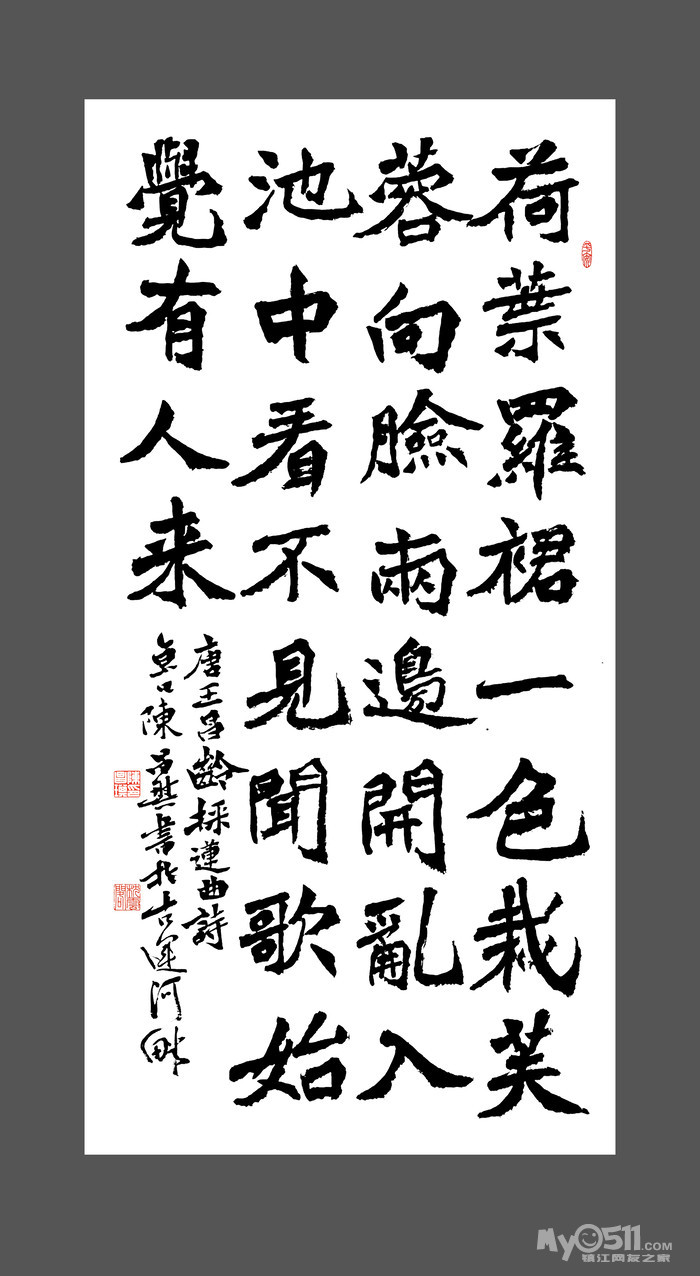 荷葉羅裙一色栽芙
蓉向臉兩邊開亂入
池中看不見聞歌始
覺有人来
唐王昌齡採蓮曲詩
京口陳書於古運河畔
My0511.COM
镇江网友之家